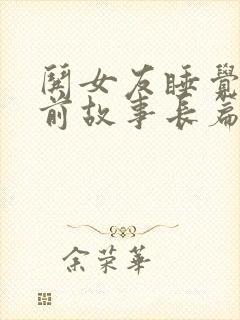 関女友睡覺
前故事長篇
余荣華